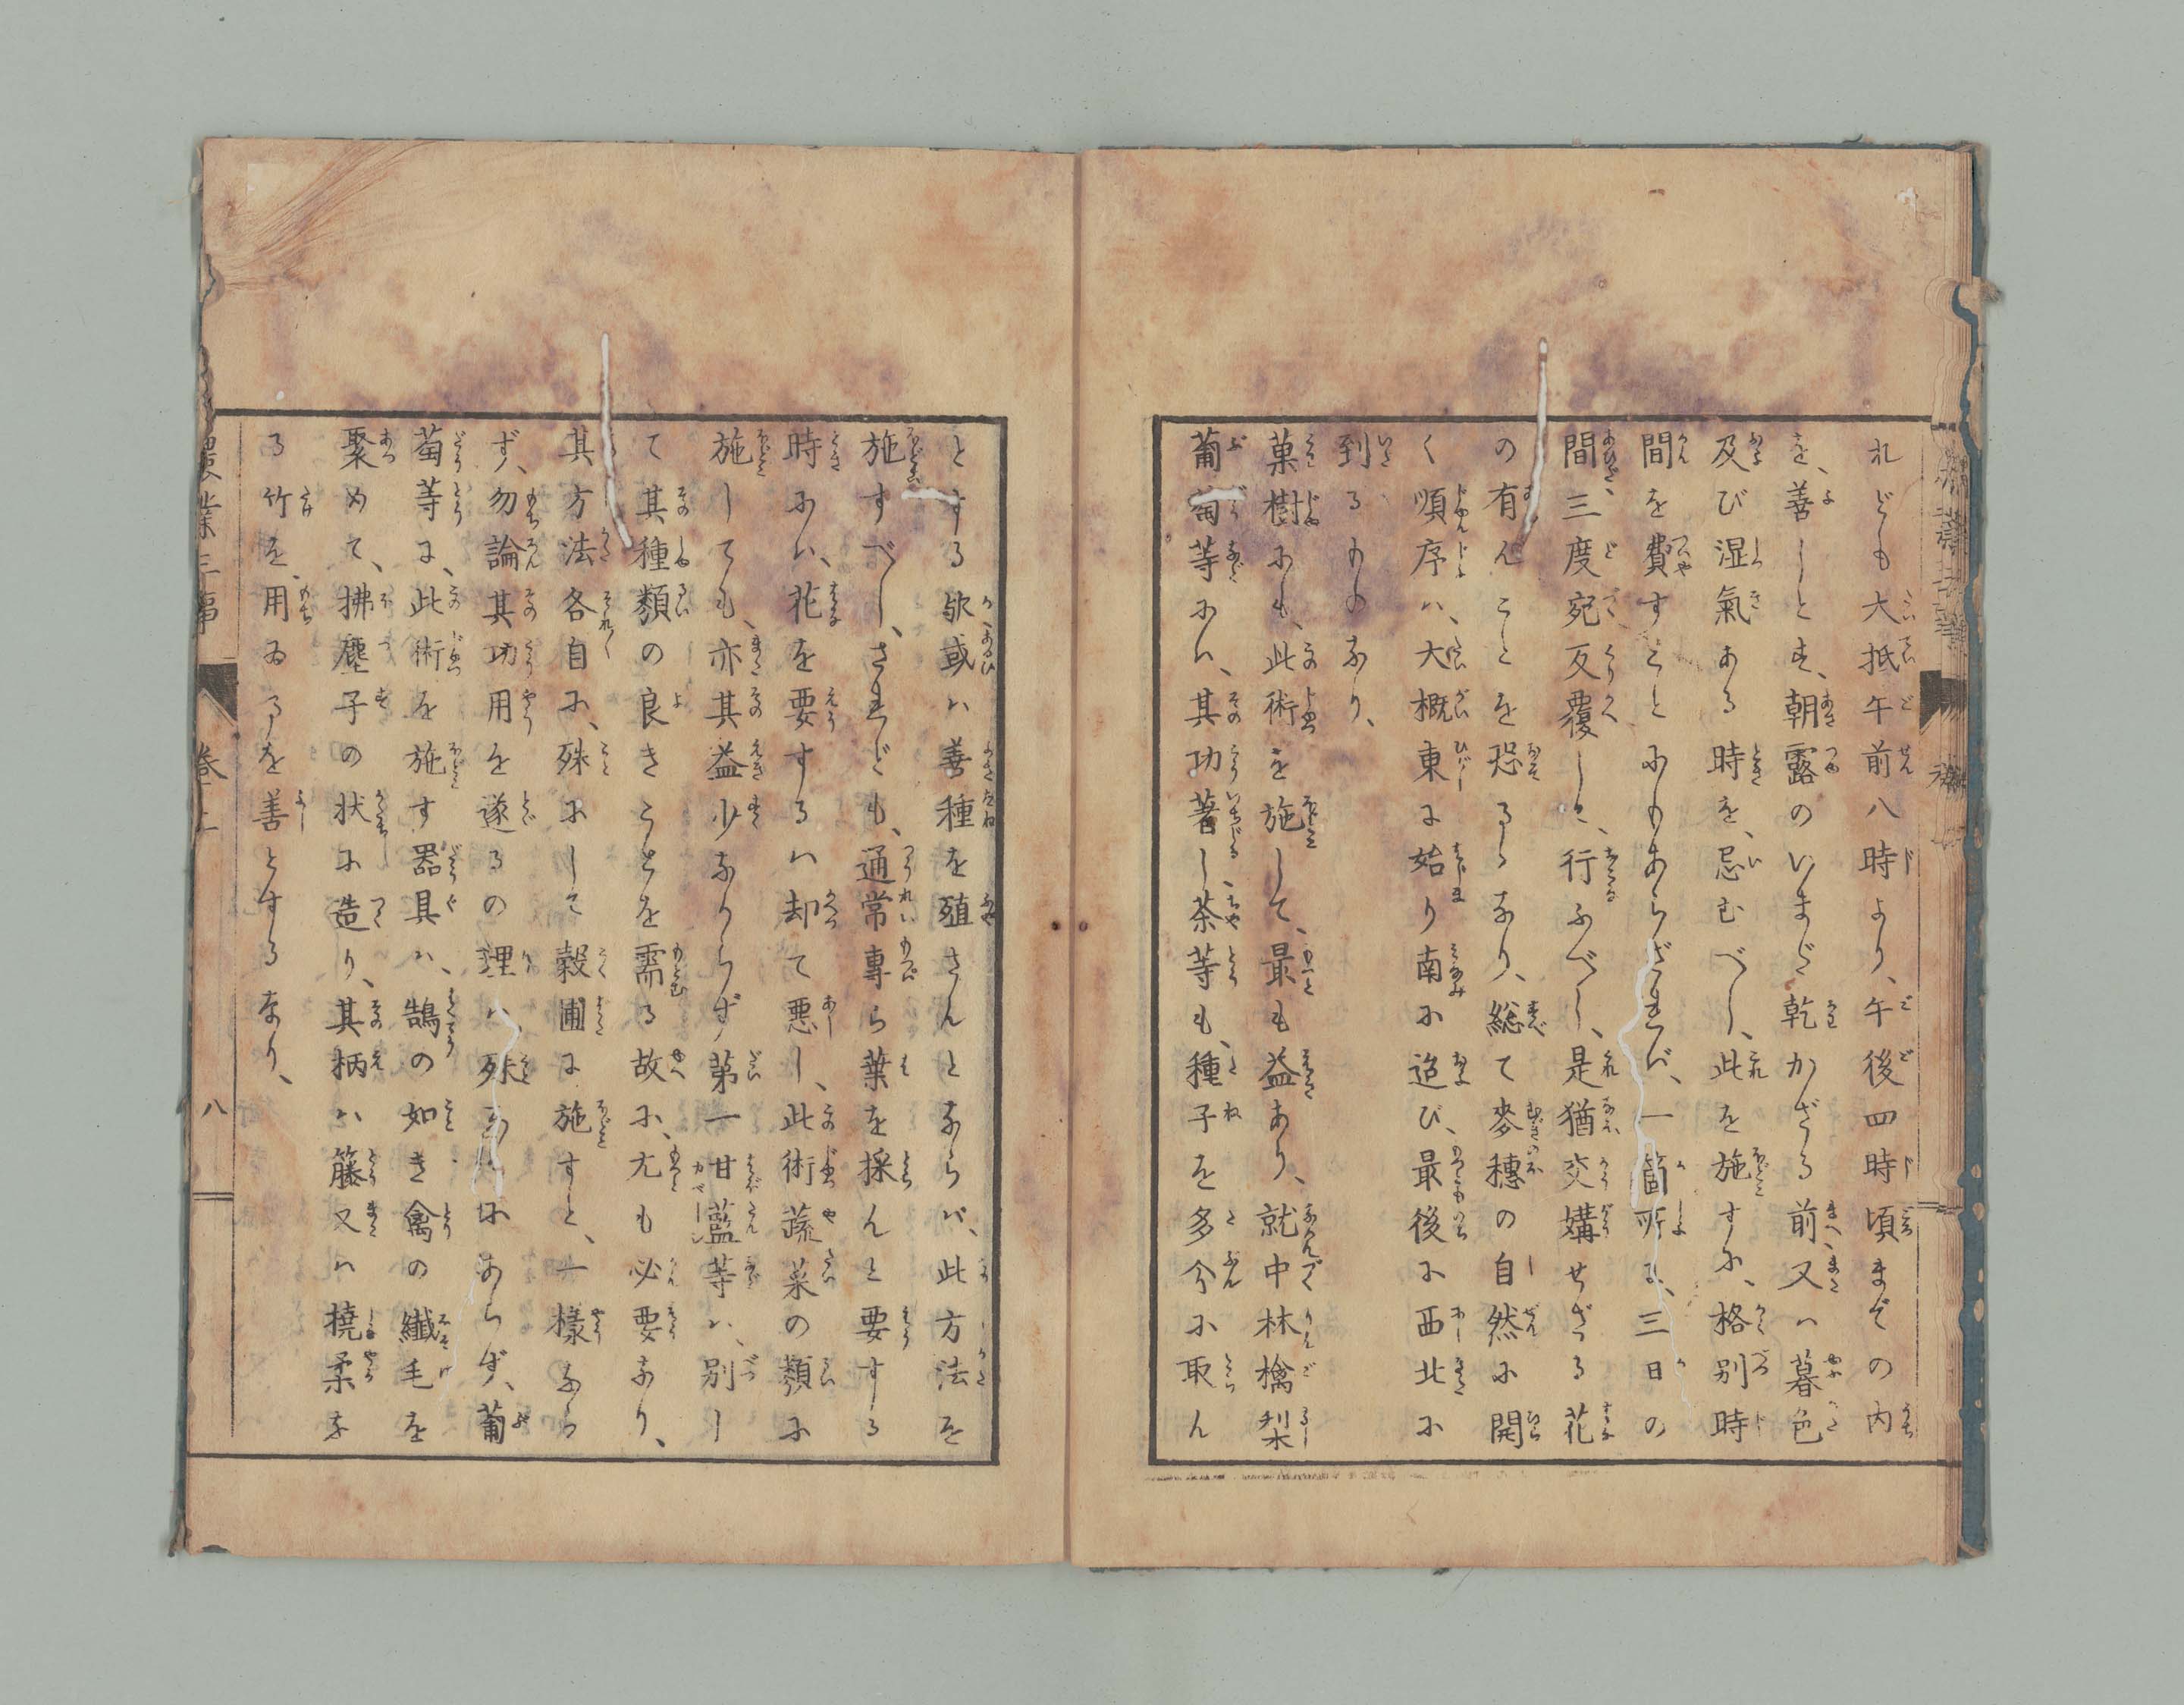 れども大抵午前八時より、午後四時頃までの内
を、善しとす、朝露のいまだ乾かざる前、又ハ暮色
及び湿氣ある時を、忌むべし、此を施すに、格別時
間を費すことにもあらざれバ、一箇所に、三日の
間、三度宛反覆して、行ふべし、是猶交媾せざる花
の有んことを恐るゝなり、総て麥穗の自然に開
く順序ハ、大概東に始り南に迨び、最後に西北に
到るものなり、
菓樹にも、此術を施して、最も益あり、就中林檎梨
葡萄等にハ、其功著し、茶等も、種子を多分に取ん
とする歟或ハ善種を殖さんとならバ、此方法を
施すべし、されども、通常專ら葉を採んと要する
時にハ、花を要するハ却て悪し、此術蔬菜の類に
施しても、亦其益少なからず第一甘藍等ハ、別し
て其種類の良きことを需る故に、尤も必要なり、
其方法各自に、殊にして穀圃に施すと、一樣なら
ず、勿論其功用を遂るの理ハ殊なるにあらず、葡
萄等に、此術を施す器具ハ、鵠の如き禽の纖毛を
聚めて、拂塵子の状に造り、其柄ハ籐又ハ撓柔な
る竹を用ゐるを善とするなり、
農業三事
卷上
八